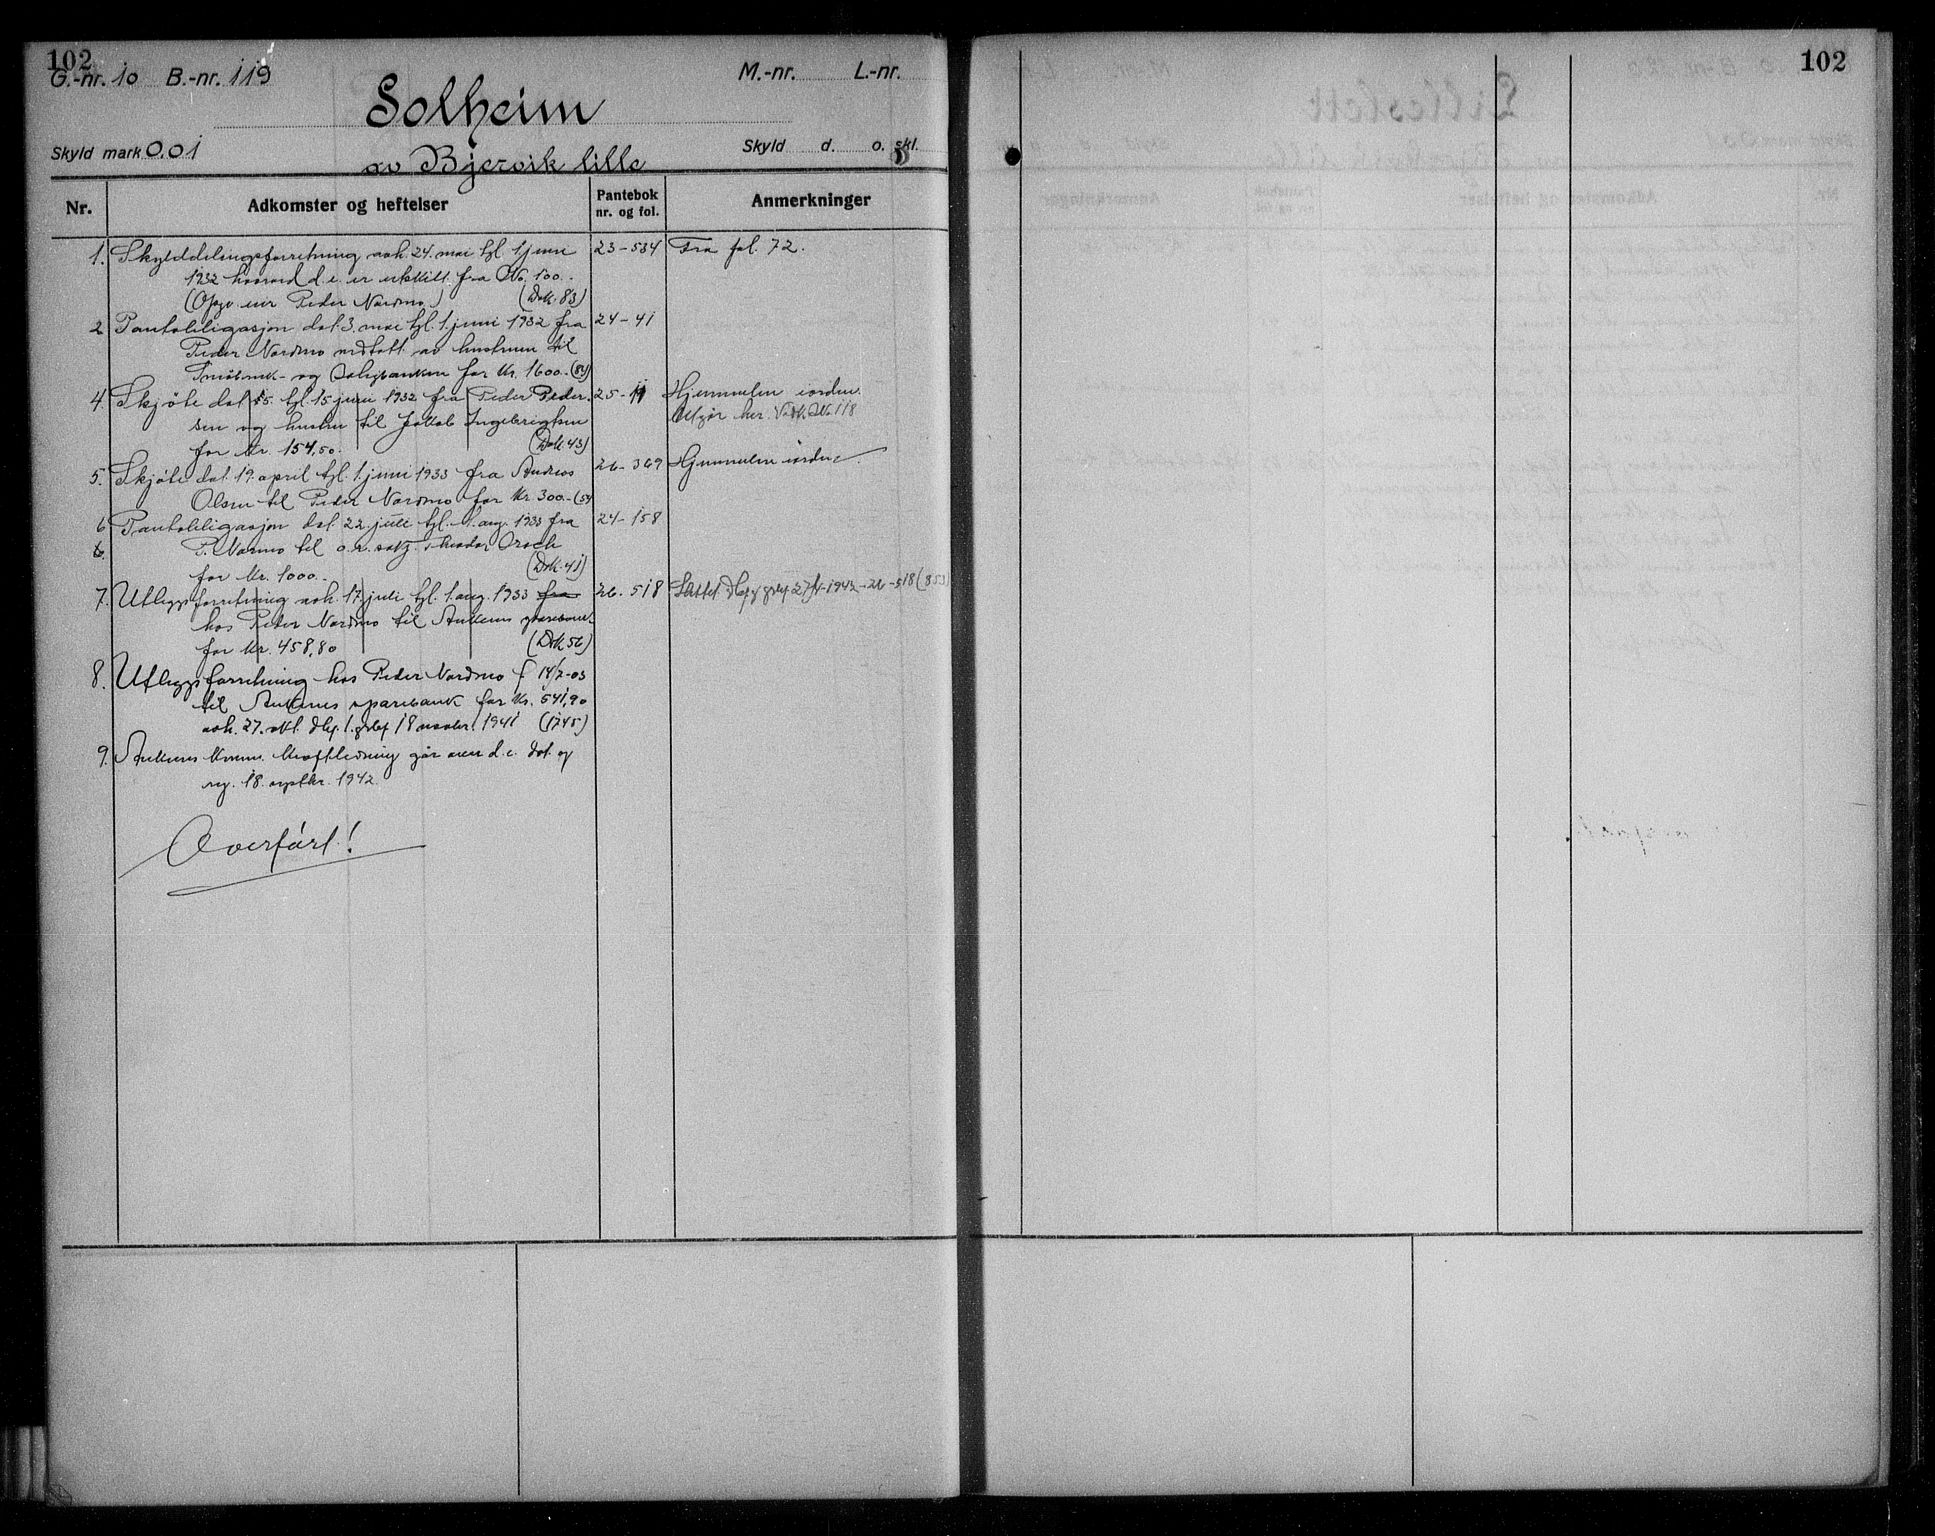 102
G.-nr. 10 B.-nr. 119
M.-nr. L.-nr.
Solheim
Skyld mark 0,01
Skyld d. o. skl.
av Bjervik lille
Nr.
Adkomster og heftelser
Pantebok nr. og fol.
Anmerkninger
1. Skylddelingsforretning avh. 24. mai tgl. 1 juni 23-534 Fra fol. 72.
1932 hvorved d.e. er utskilt fra No. 100.
(Opgv. eier Peder Nordmo) (Dok. 83)
2 Pantobligasjon dat. 3. mai tgl. 1. juni 1932 fra 24-41
Peder Nordmo vedtatt av hustruen til
Småbruk- og Boligbanken for Kr. 1600.- (84)
4. Skjøte dat. 15. tgl. 15 juni 1932 fra Peder Peder- 25-11 Hjemmelen i orden.
sen og hustru til Jakob Ingebrigtsen Utgår her. Vedk. No. 118
for Kr. 154,50. (Dok 43)
5. Skjøte dat. 19. april tgl. 1. juni 1933 fra Andreas 26-369 Hjemmelen i orden
Olsen til Peder Nordmo for Kr. 300.-
6 Pantobligasjon dat. 22. juli tgl. 1. aug. 1933 fra 24-158
6. P. Normo til o.r. sakf. Theodor Broch
for Kr. 1000.- (Dok. 41)
7. Utleggsforretning avh. 17. juli tgl. 1. aug. 1933 fra 26-518 Slettet
hos Peder Nordmo til Ankenes sparebank
for Kr. 458,80 (Dok 56)
8. Utleggsforretning hos Peder Nordmo f. 14/7-03
til Ankenes sparebank for Kr. 541,90
avh. 27. okt. dbf. 1. gdbf 18 novbr. 1941 (1745)
9. Ankenes komm. Kraftledning går over d.e. dat. og
reg. 18. septbr. 1942
Overført!
102